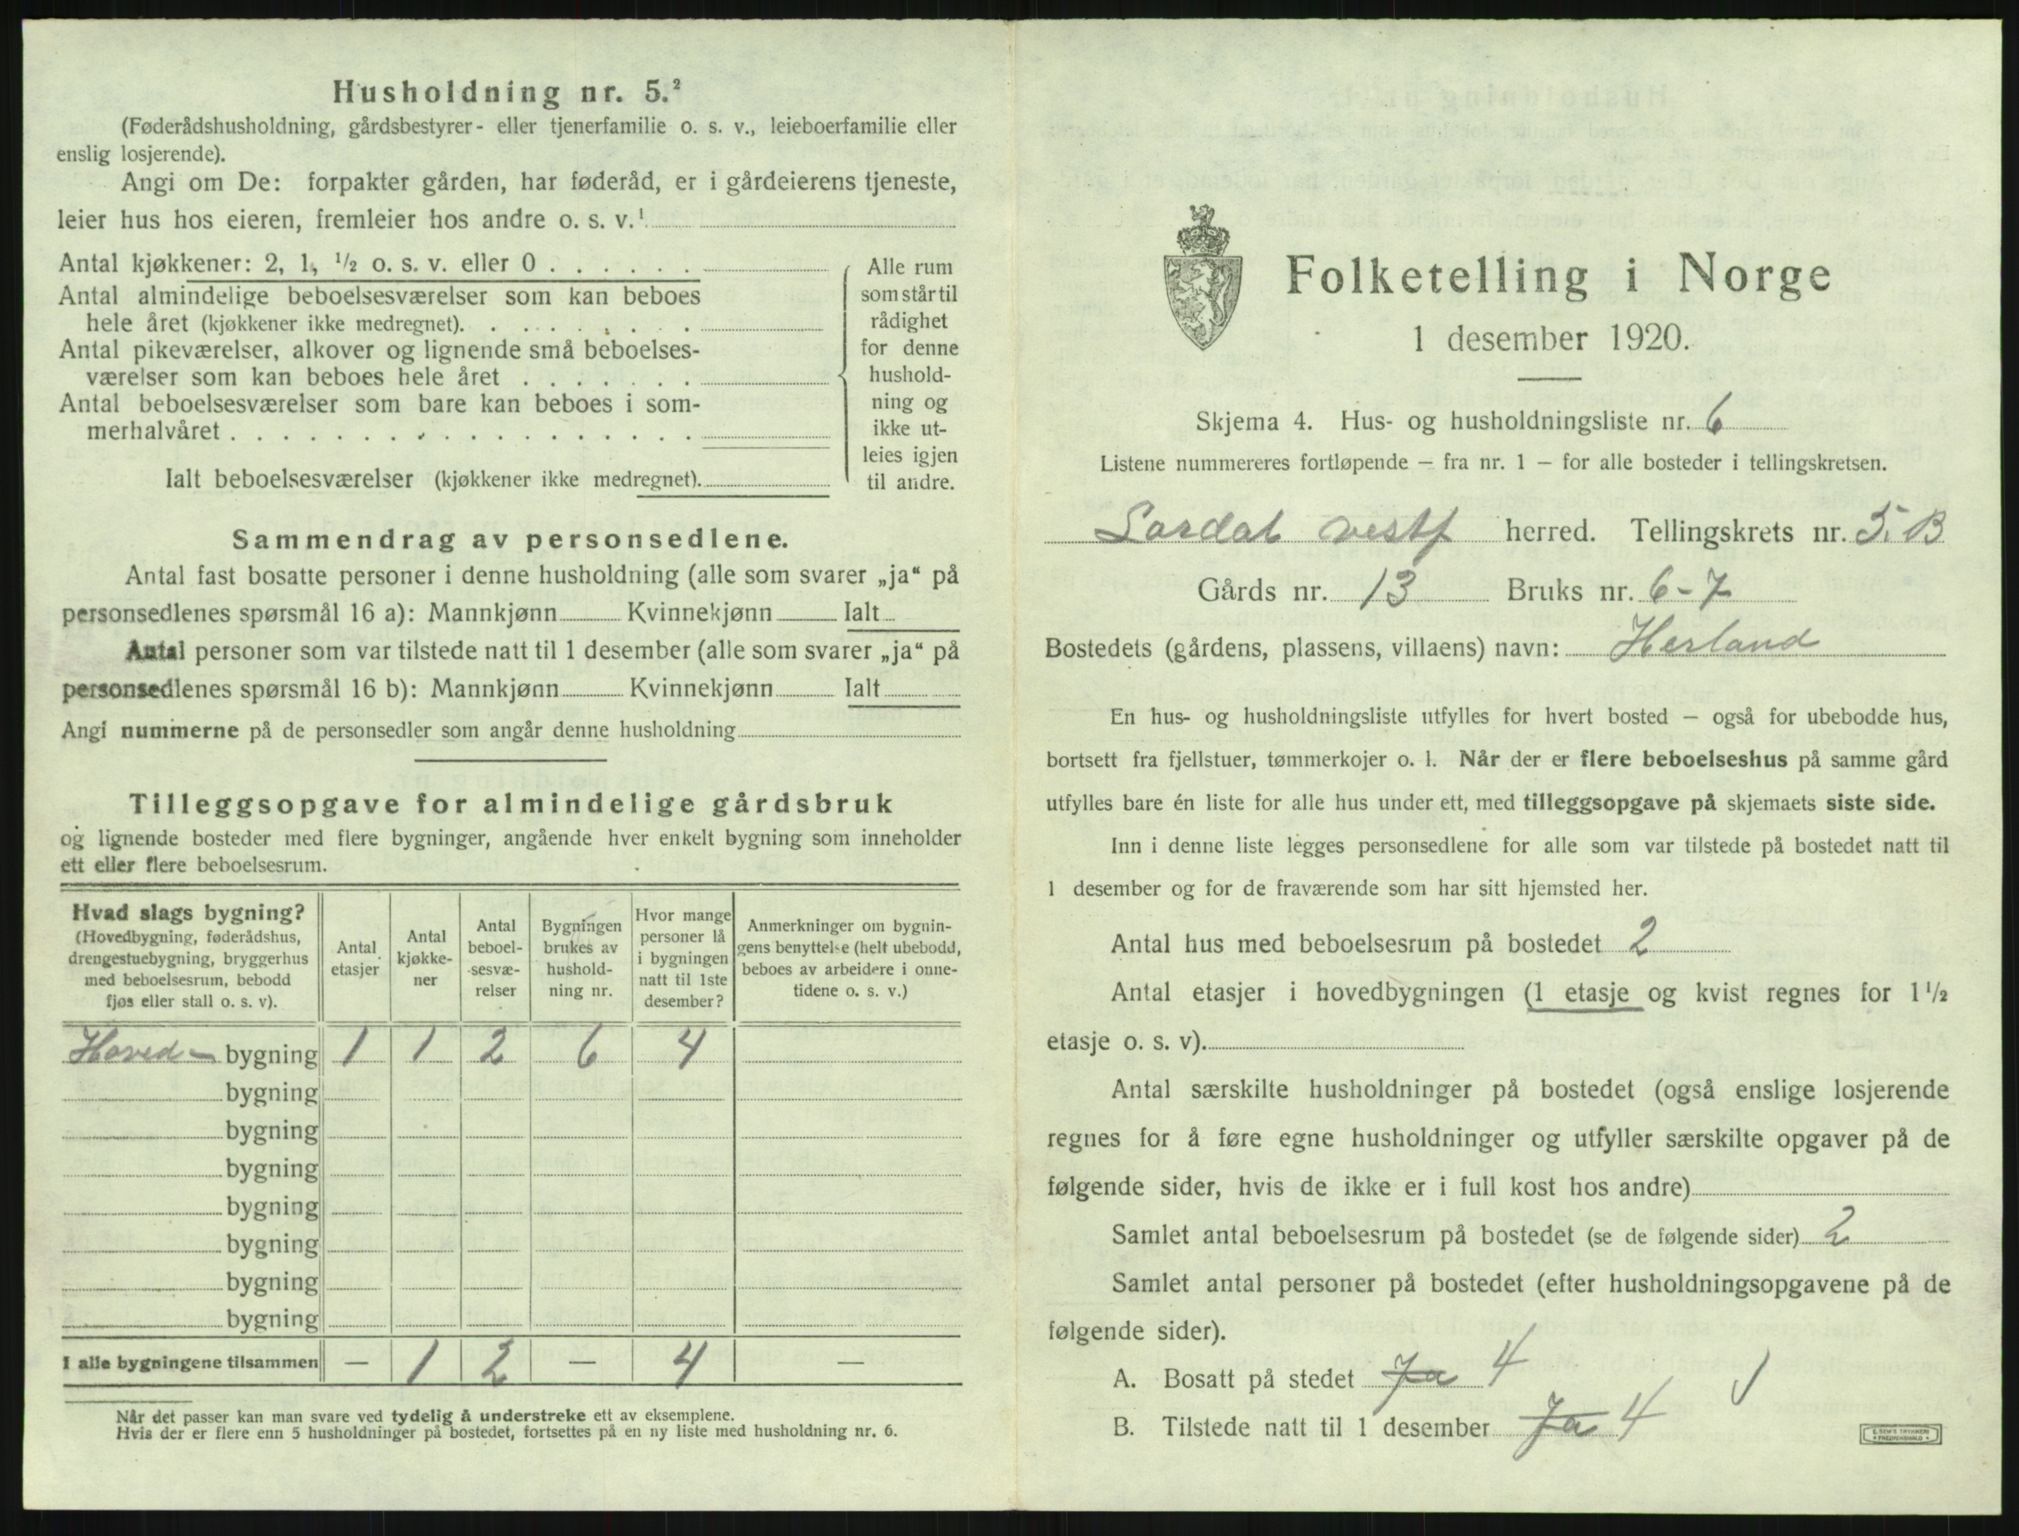 Husholdning nr. 5.²
(Føderådshusholdning, gårdsbestyrer- eller tjenerfamilie o. s. v., leieboerfamilie eller
enslig losjerende).
Angi om De: forpakter gården, har føderåd, er i gårdeierens tjeneste,
leier hus hos eieren, fremleier hos andre o. s. v.¹
Antal kjøkkener: 2, 1, ½ o. s. v. eller 0 . . . . . .
Antal almindelige beboelsesværelser som kan beboes
hele året (kjøkkener ikke medregnet). . . . . . . . .
Antal pikeværelser, alkover og lignende små beboelses-
værelser som kan beboes hele året . . . . . . .
Antal beboelsesværelser som bare kan beboes i som-
merhalvåret . . . . . . . . . . . . . . . . . .
Ialt beboelsesværelser (kjøkkener ikke medregnet).
Alle rum
som står til
rådighet
for denne
hushold-
ning og
ikke ut-
leies igjen
til andre.
Sammendrag av personsedlene.
Antal fast bosatte personer i denne husholdning (alle som svarer „ja“ på
personsedlenes spørsmål 16 a): Mannkjønn Kvinnekjønn Ialt
Antal personer som var tilstede natt til 1 desember (alle som svarer „ja“ på
personsedlenes spørsmål 16 b): Mannkjønn Kvinnekjønn Ialt
Angi nummerne på de personsedler som angår denne husholdning
Tilleggsopgave for almindelige gårdsbruk
og lignende bosteder med flere bygninger, angående hver enkelt bygning som inneholder
ett eller flere beboelsesrum.
Hvad slags bygning?
(Hovedbygning, føderådshus,
drengestuebygning, bryggerhus
med beboelsesrum, bebodd
fjøs eller stall o. s. v).
Antal
etasjer
Antal
kjøkke-
ner
Antal
beboel-
sesvæ-
relser
Bygningen
brukes av
hushold-
ning nr.
Hvor mange
personer lå
i bygningen
natt til 1ste
desember?
Anmerkninger om bygnin-
gens benyttelse (helt ubebodd,
beboes av arbeidere i onne-
tidene o. s. v.)
Hoved- bygning 1 1 2 6 4
bygning
bygning
bygning
bygning
bygning
bygning
bygning
I alle bygningene tilsammen — 1 2 — 4 —
Når det passer kan man svare ved tydelig å understreke ett av eksemplene.
Hvis der er flere enn 5 husholdninger på bostedet, fortsettes på en ny liste med husholdning nr. 6.
Folketelling i Norge
1 desember 1920.
Skjema 4. Hus- og husholdningsliste nr. 6
Listene nummereres fortløpende — fra nr. 1 — for alle bosteder i tellingskretsen.
Lardal vestf herred. Tellingskrets nr. 5. B
Gårds nr. 13 Bruks nr. 6-7
Bostedets (gårdens, plassens, villaens) navn: Herland
En hus- og husholdningsliste utfylles for hvert bosted — også for ubebodde hus,
bortsett fra fjellstuer, tømmerkojer o. l. Når der er flere beboelseshus på samme gård
utfylles bare én liste for alle hus under ett, med tilleggsopgave på skjemaets siste side.
Inn i denne liste legges personsedlene for alle som var tilstede på bostedet natt til
1 desember og for de fraværende som har sitt hjemsted her.
Antal hus med beboelsesrum på bostedet 2
Antal etasjer i hovedbygningen (1 etasje og kvist regnes for 1½
etasje o. s. v).
Antal særskilte husholdninger på bostedet (også enslige losjerende
regnes for å føre egne husholdninger og utfyller særskilte opgaver på de
følgende sider, hvis de ikke er i full kost hos andre)
Samlet antal beboelsesrum på bostedet (se de følgende sider) 2
Samlet antal personer på bostedet (efter husholdningsopgavene på de
følgende sider).
A. Bosatt på stedet Ja 4
B. Tilstede natt til 1 desember Ja 4